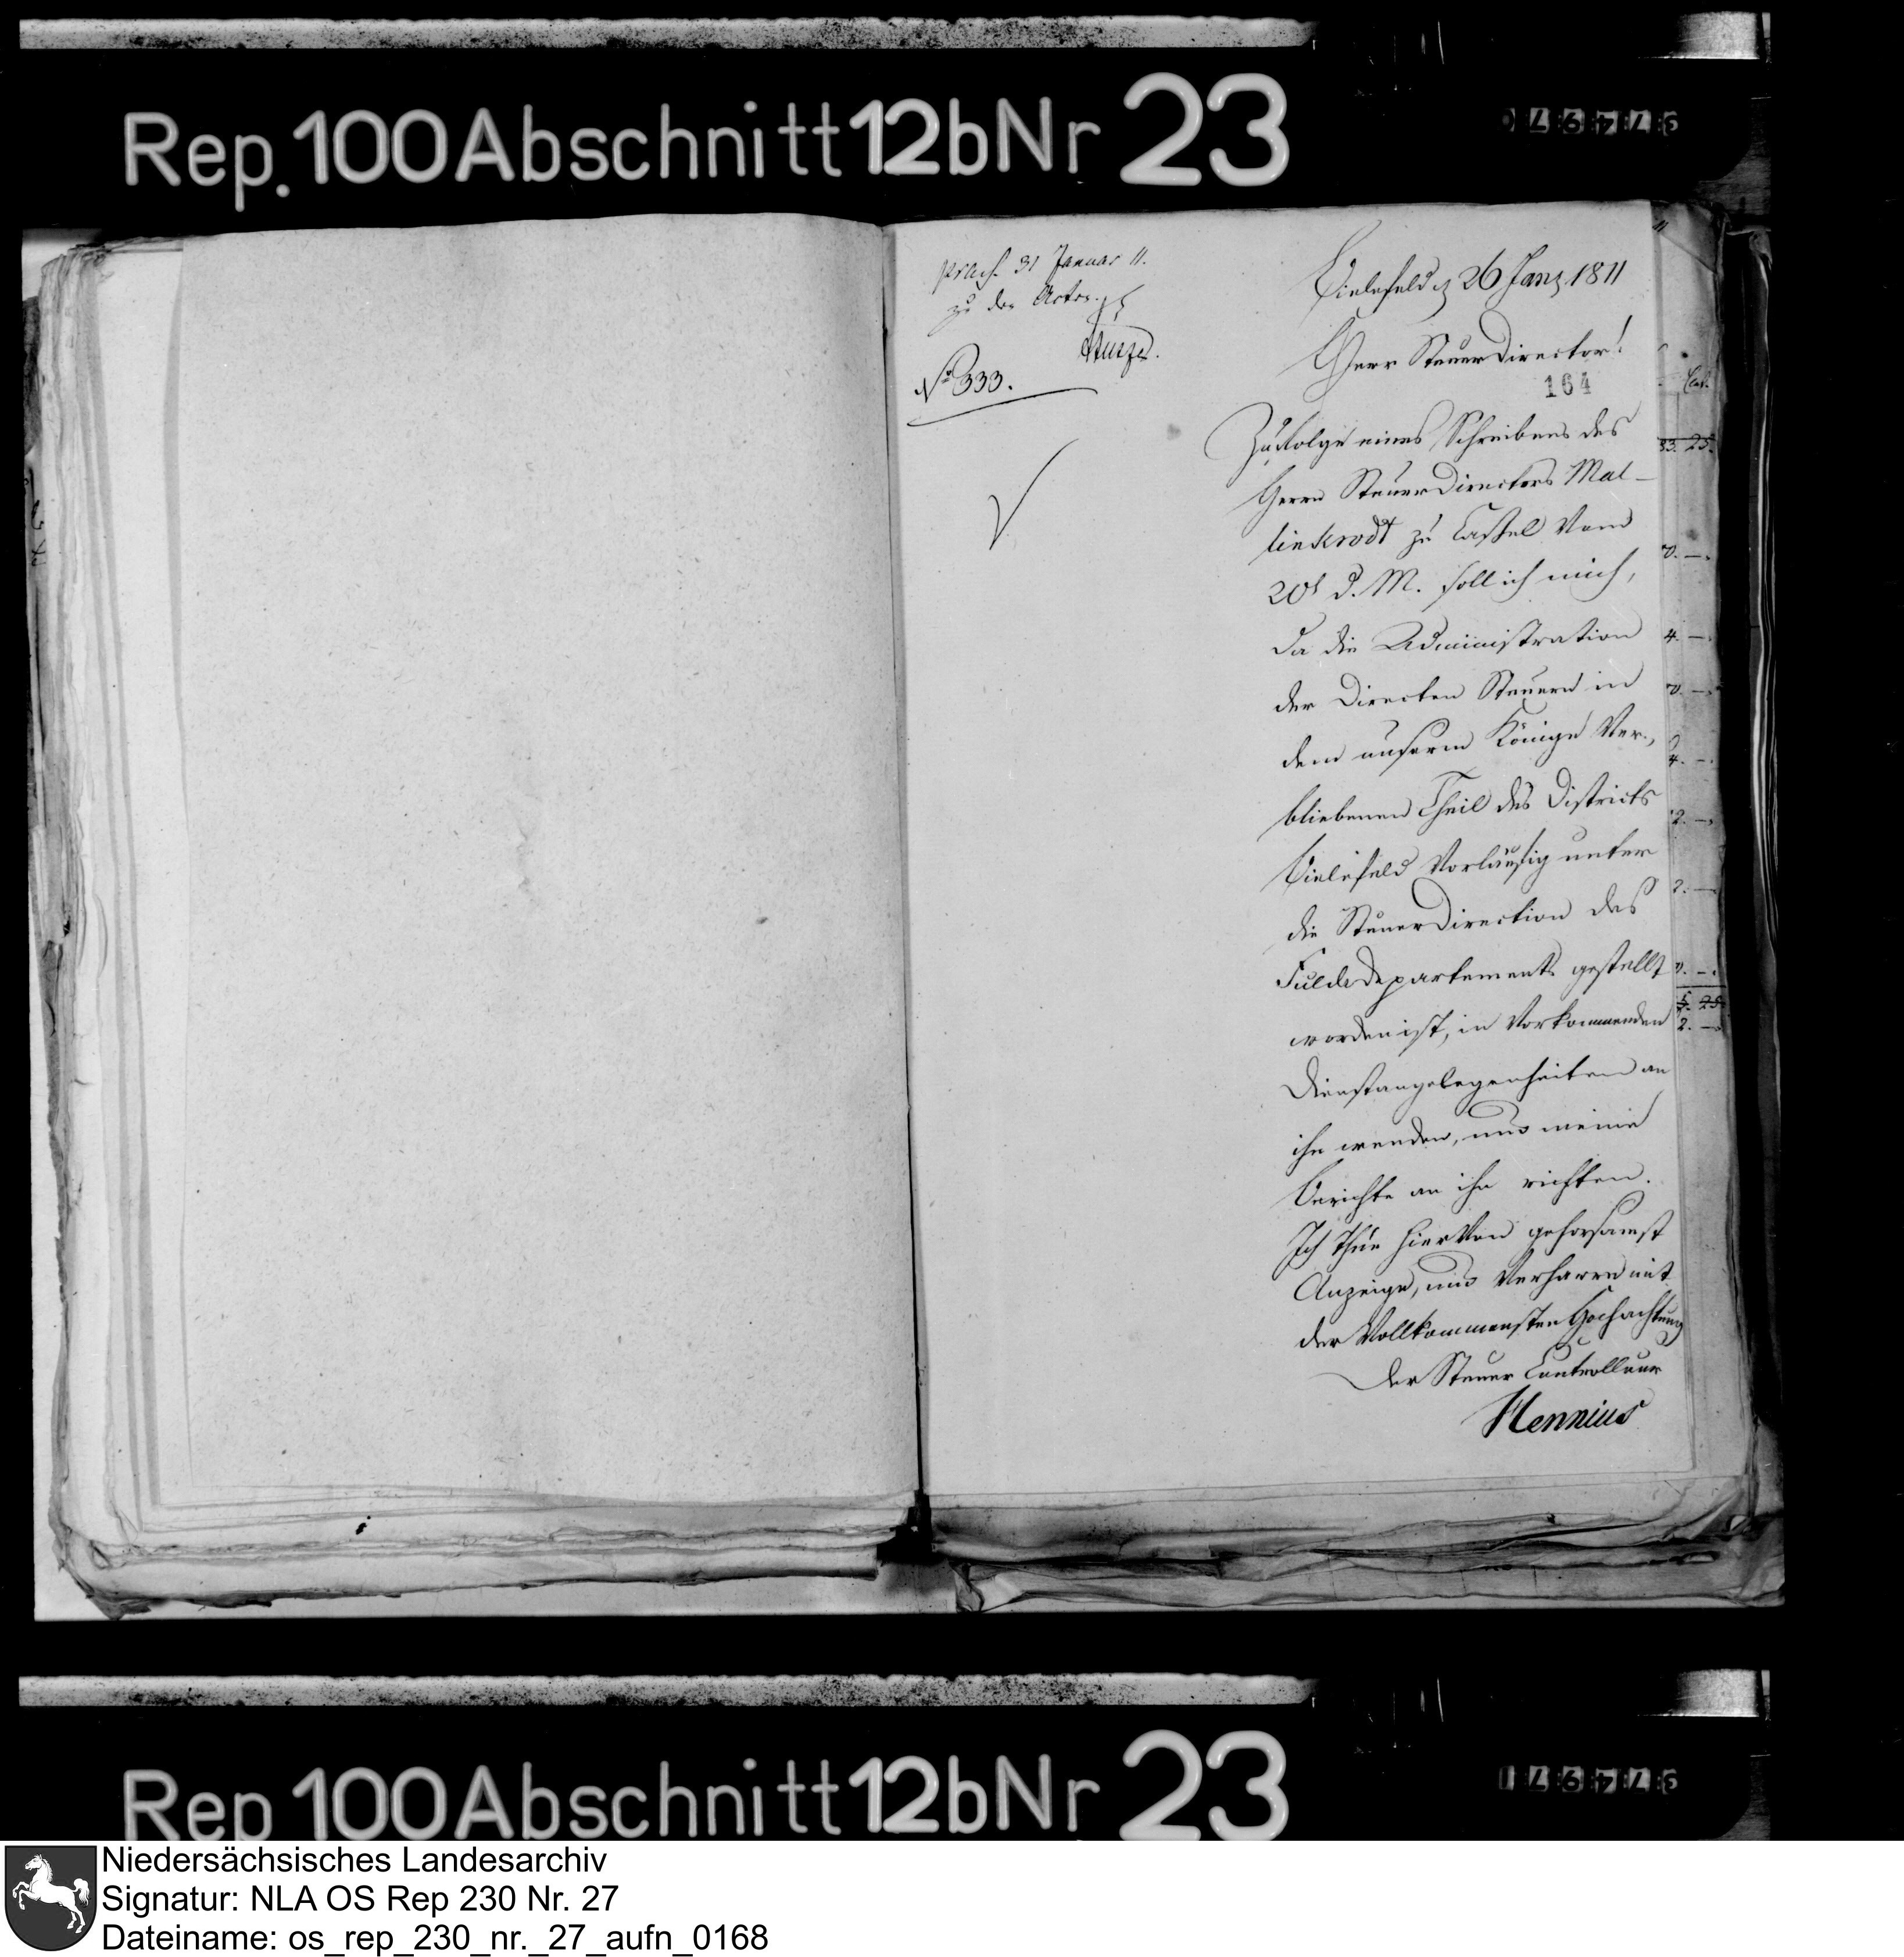 Rep. 100 Abschnitt 12b Nr 23
praes. 31 Januar 11.
zu den Acten.
No 333.
Bielefeld d 26 Janr 1811
Herr SteuerDirector!
164
Zufolge eines Schreibens des
Herrn SteuerDirectors Mal-
linkrodt zu Cassel vom
20t d. M. soll ich mich,
da die Administration
der Directen Steuern in
dem unserm Könige ver-
bliebenen Theil des Districts
Bielefeld vorläufig unter
die SteuerDirection des
Fuldedepartements gestellt
worden ist, in vorkommenden
Dienstangelegenheiten an
ihn wenden, und meine
Berichte an ihn richten.
Ich thue hiervon gehorsamst
Anzeige, und verharre mit
der vollkommensten Hochachtung
der Steuer Controlleur
Hennius
11
Cent.
33. 25.
4. —.
4. —.
2. —.
2. —.
25
2. —
Rep 100 Abschnitt 12b Nr 23
Niedersächsisches Landesarchiv
Signatur: NLA OS Rep 230 Nr. 27
Dateiname: os_rep_230_nr._27_aufn_0168